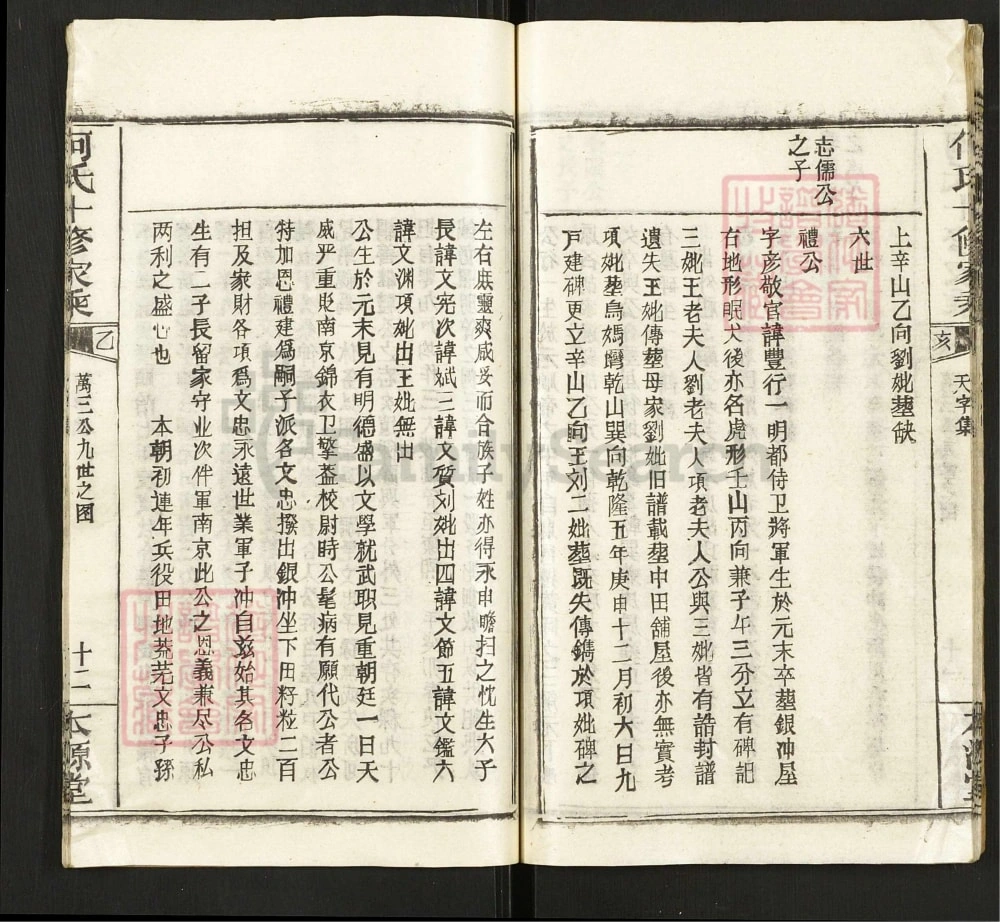 上辛山乙向劉妣墓缺
六世
志儒公
之子
禮公
字彥敬官諱豐行一明都侍卫將軍生於元末卒墓銀冲屋
右地形眠犬後亦名虎形壬山丙向兼子午三分立有碑記
三妣王老夫人劉老夫人項老夫人公與三妣皆有誥封譜
遺失王妣傳墓母家劉妣旧譜載墓中田舖屋後亦無實考
項妣墓烏媽磨乾山巽向乾隆五年庚申十二月初六日九
戸建碑更立辛山乙向王刘二妣墓既失傳鐫於項妣碑之
左右庶靈爽咸妥而合族子姓亦得永申瞻扫之忱生六子
長諱文宪次諱斌三諱文質刘妣出四諱文節五諱文鑑六
諱文渊項妣出王妣無出
公生於元末見有明德盛以文學就武职見重朝廷一日天
威严重貶南京錦衣卫擎盖校尉時公髦病有願代公者公
特加恩禮建爲嗣子派名文忠撥出銀冲坐下田籽粒二百
担及家財各項爲文忠永遠世業軍子冲自兹始其名文忠
生有二子長留家守业次件軍南京此公之恩義兼尽公私
两利之盛心也　本朝初連年兵役田地荒芜文忠子孫
何氏十修家乘
乙
萬三公九世之图
十二
本源堂
亥
天字集